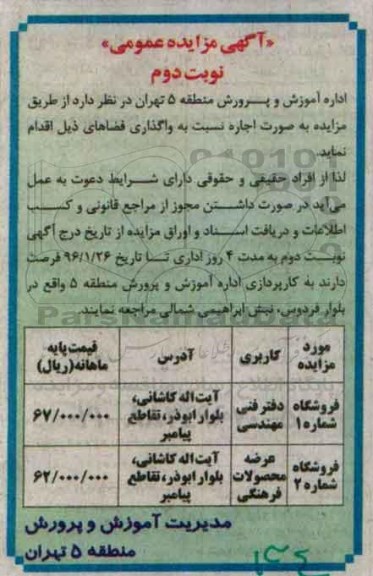 «آگهی مزایده عمومی»
نوبت دوم
اداره آموزش و پــرورش منطقه ۵ تهران در نظر دارد از طریق
مزایده به صورت اجاره نسبت به واگذاری فضاهای ذیل اقدام
نماید.
لذا از افراد حقیقی و حقوقی دارای شــرایط دعوت به عمل
می‌آید در صورت داشــتن مجوز از مراجع قانونی و کســب
اطلاعات و دریافت اســناد و اوراق مزایده از تاریخ درج آگهی
نوبــت دوم به مدت ۴ روز اداری تــا تاریخ ۹۶/۱/۲۶ فرصت
دارند به کارپردازی اداره آموزش و پرورش منطقه ۵ واقع در
بلوار فردوس، نبش ابراهیمی شمالی مراجعه نمایند.
مورد مزایده کاربری آدرس قیمت پایه ماهانه(ریال)
فروشگاه شماره ۱ دفتر فنی مهندسی آیت‌اله کاشانی، بلوار ابوذر، تقاطع پیامبر ۶۷/۰۰۰/۰۰۰
فروشگاه شماره ۲ عرضه محصولات فرهنگی آیت‌اله کاشانی، بلوار ابوذر، تقاطع پیامبر ۶۲/۰۰۰/۰۰۰
مدیریت آموزش و پرورش
منطقه ۵ تهران